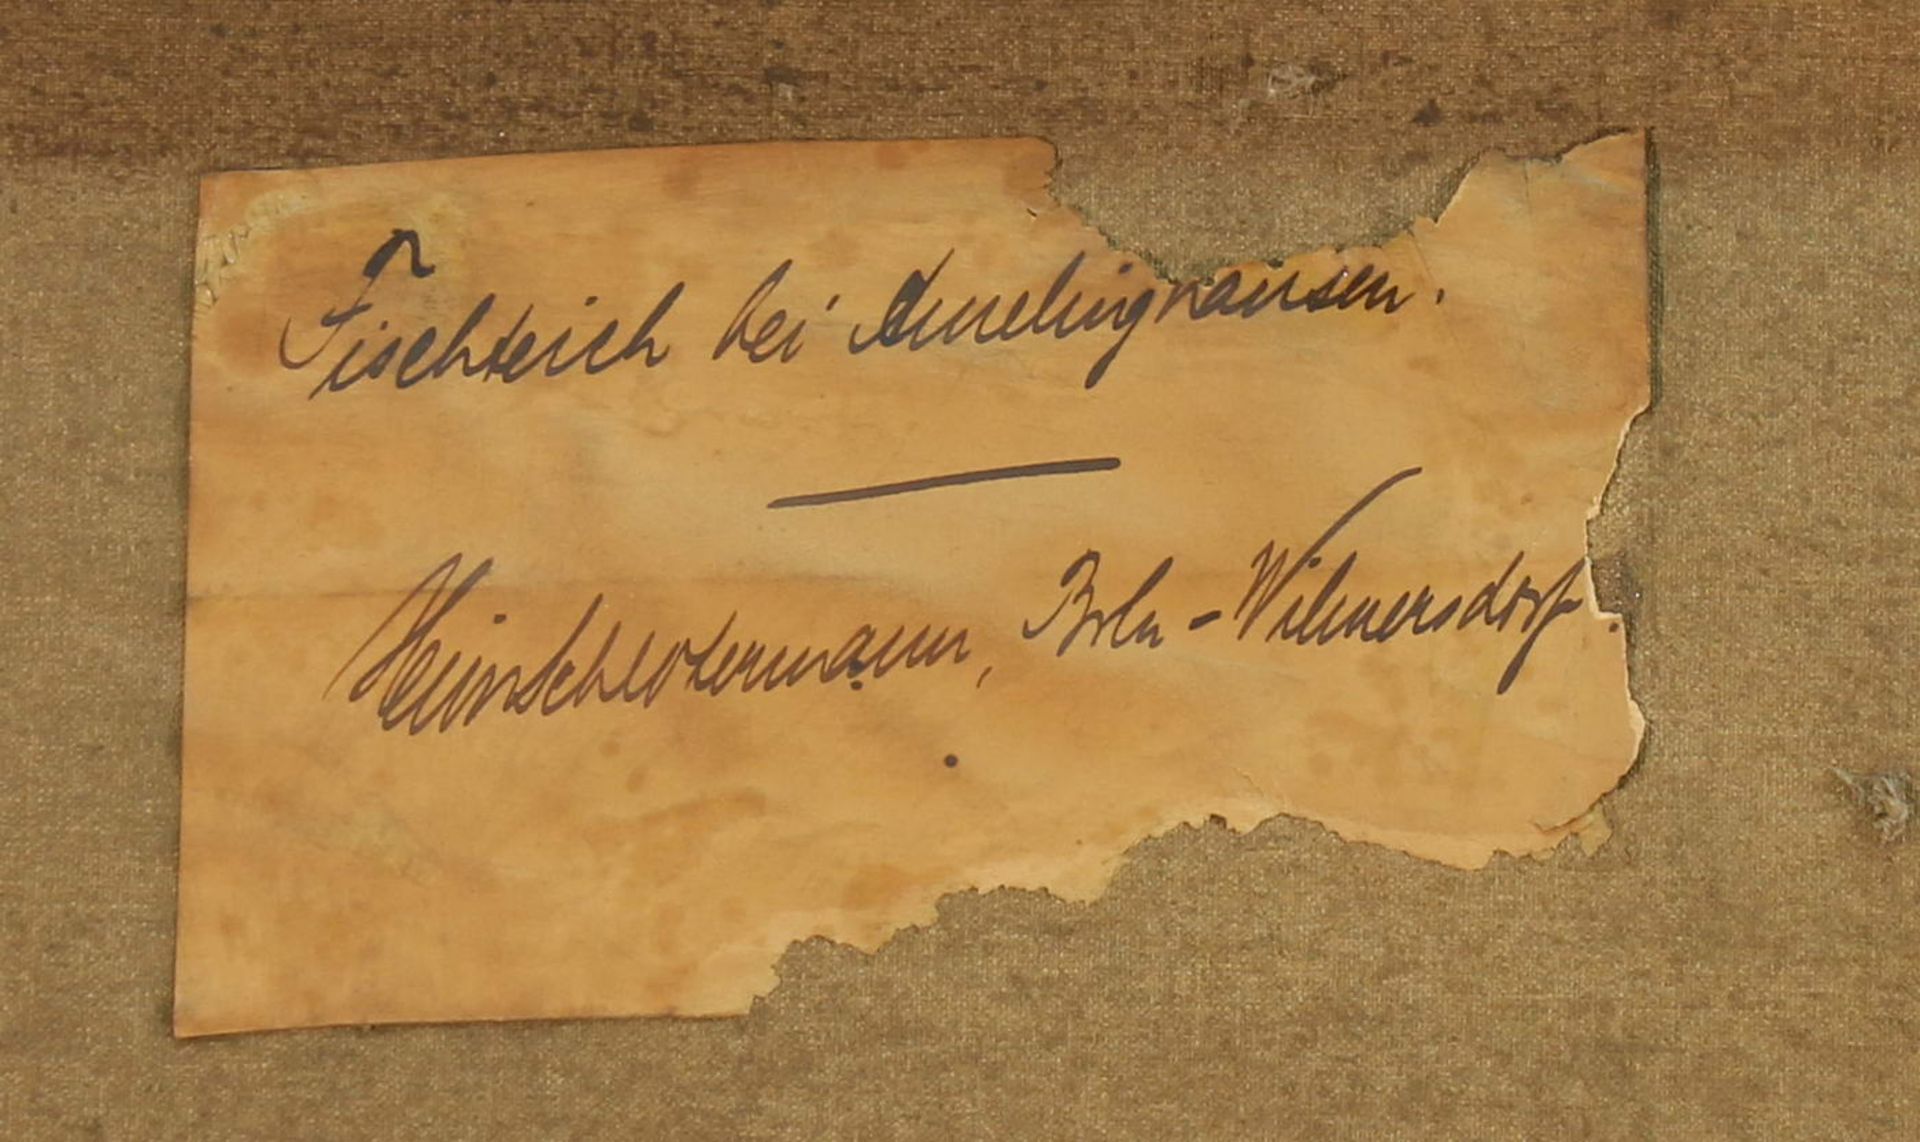 Fischteich bei Amelinghausen.
Heinr Schlotermann, Brln-Wilmersdorf.